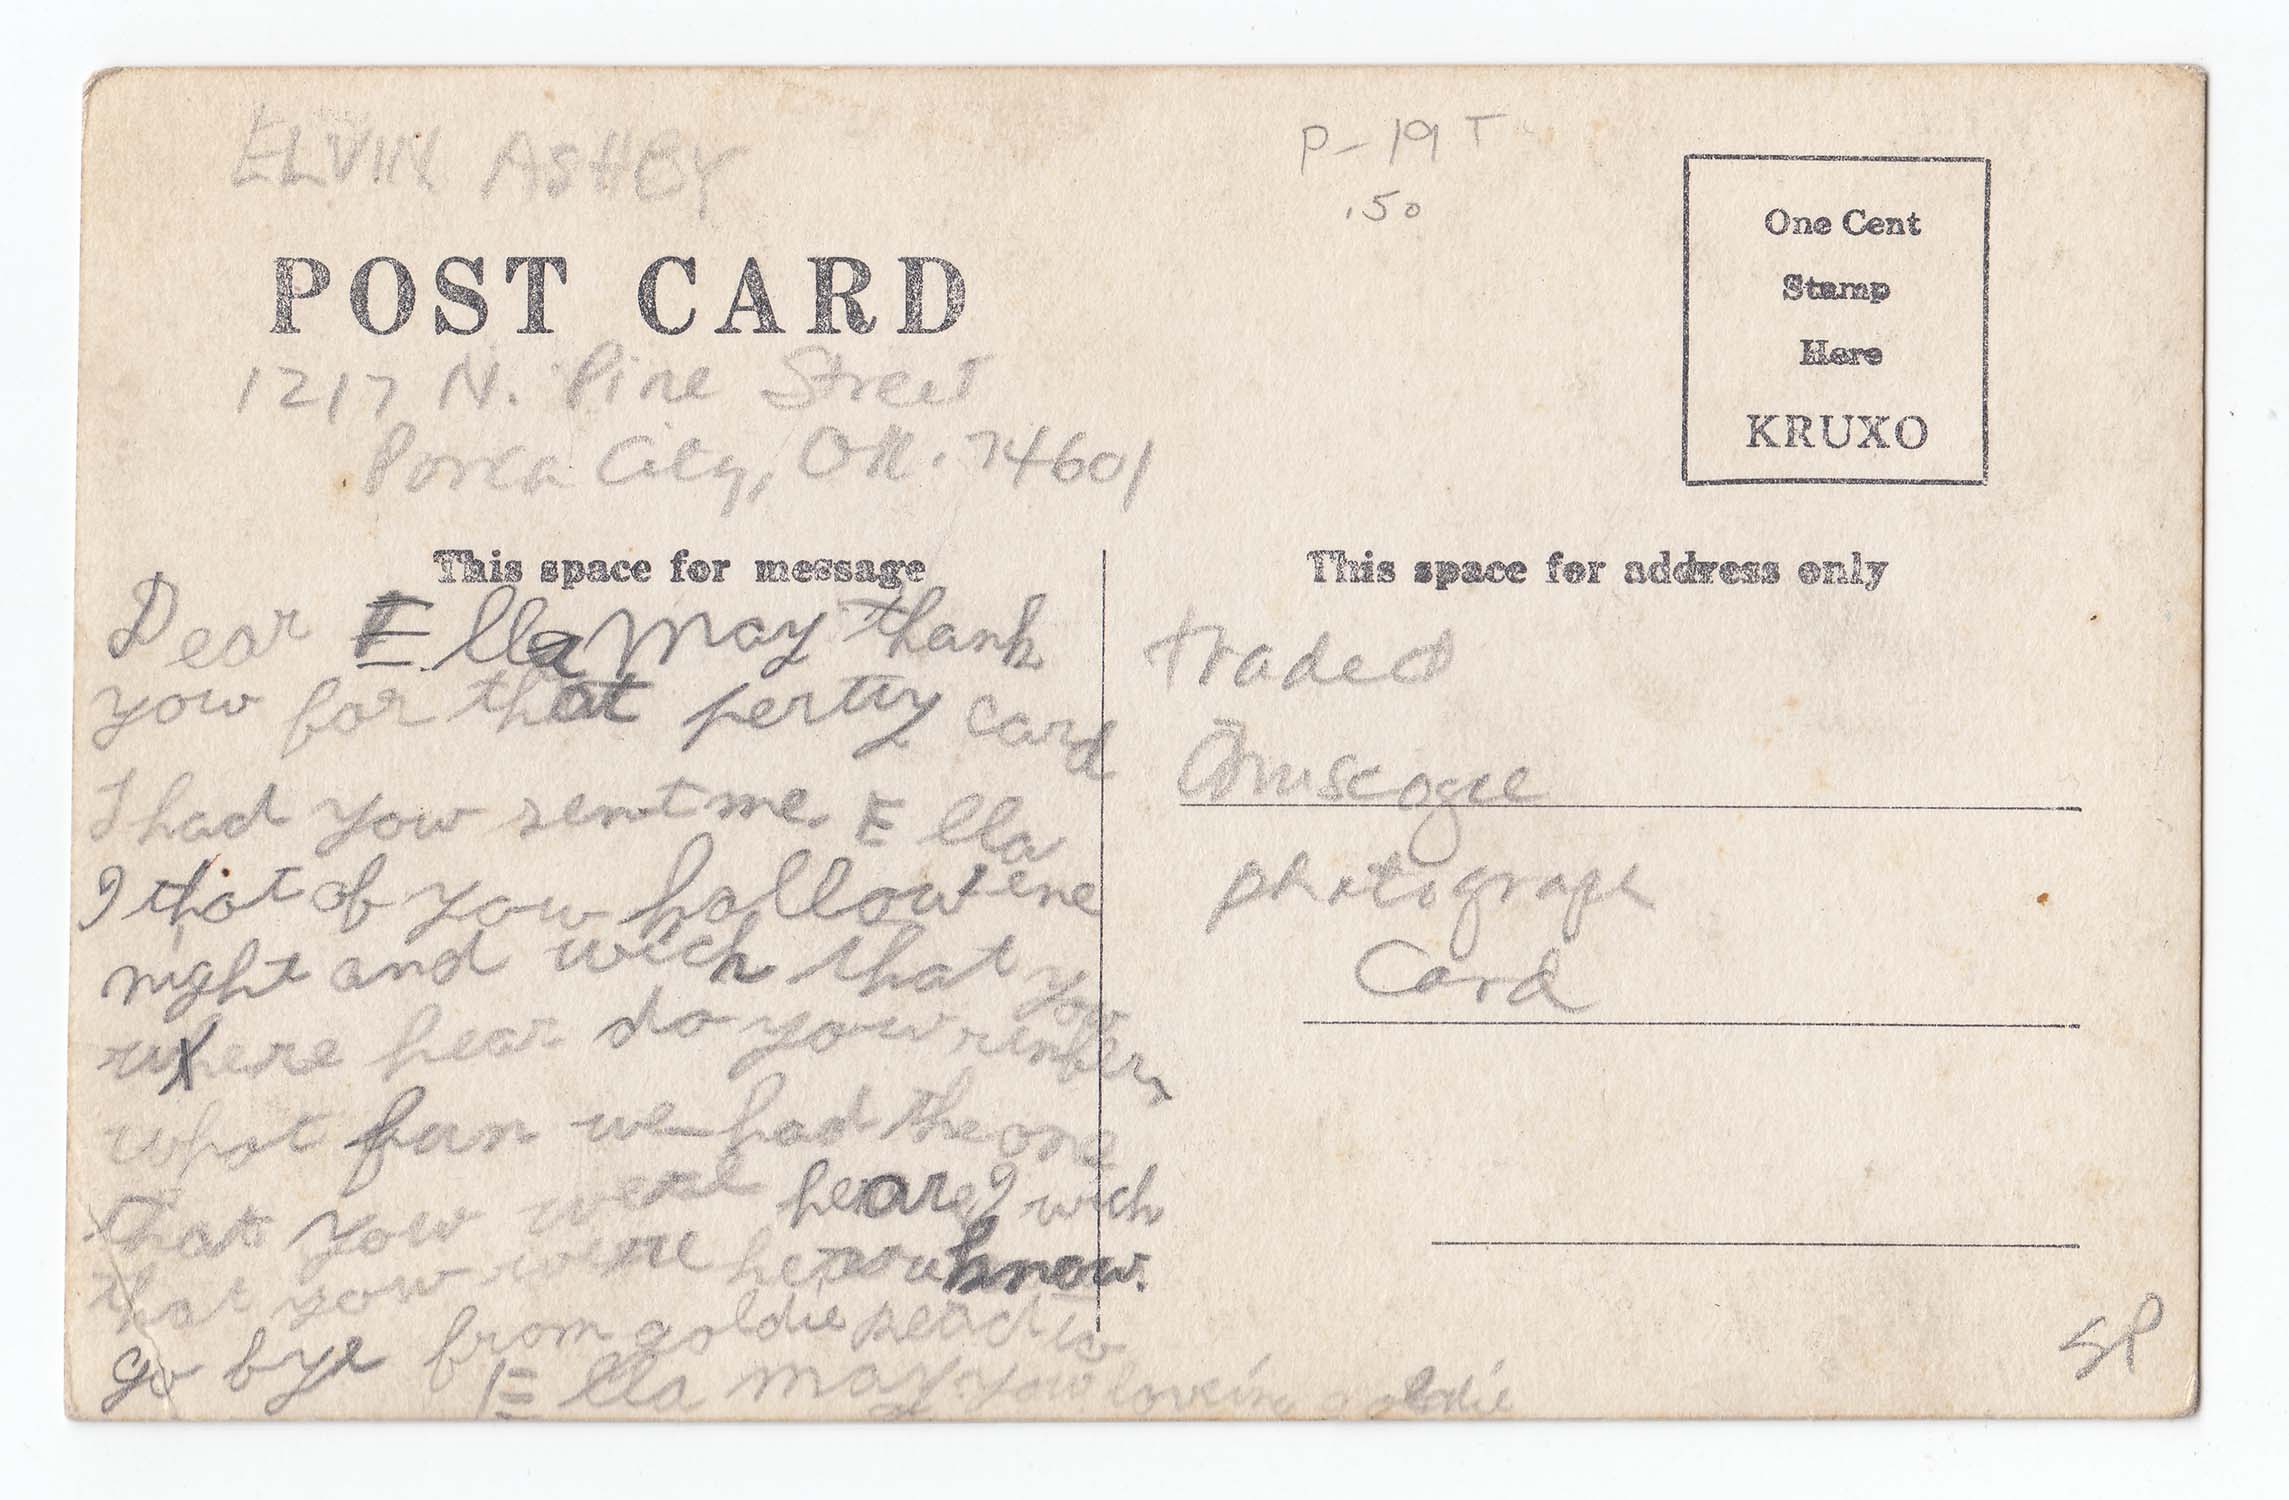 ELVIN ASHBY
P-19T
.50
POST CARD
One Cent
Stamp
Here
KRUXO
1217 N. Pine Street
Ponca City, OK. 74601
This space for message
This space for address only
Dear Ella May thank
yow for that pertty card
I had yow sent me. Ella
I that of yow hallow'ene
night and wich that yow
where hear do yow rember
what fun we had the one
that yow were heare I wich
that yow were hear know.
go bye from goldie to
Ella may yow loveing goldie
traded
muscogee
photograph
Card
SP